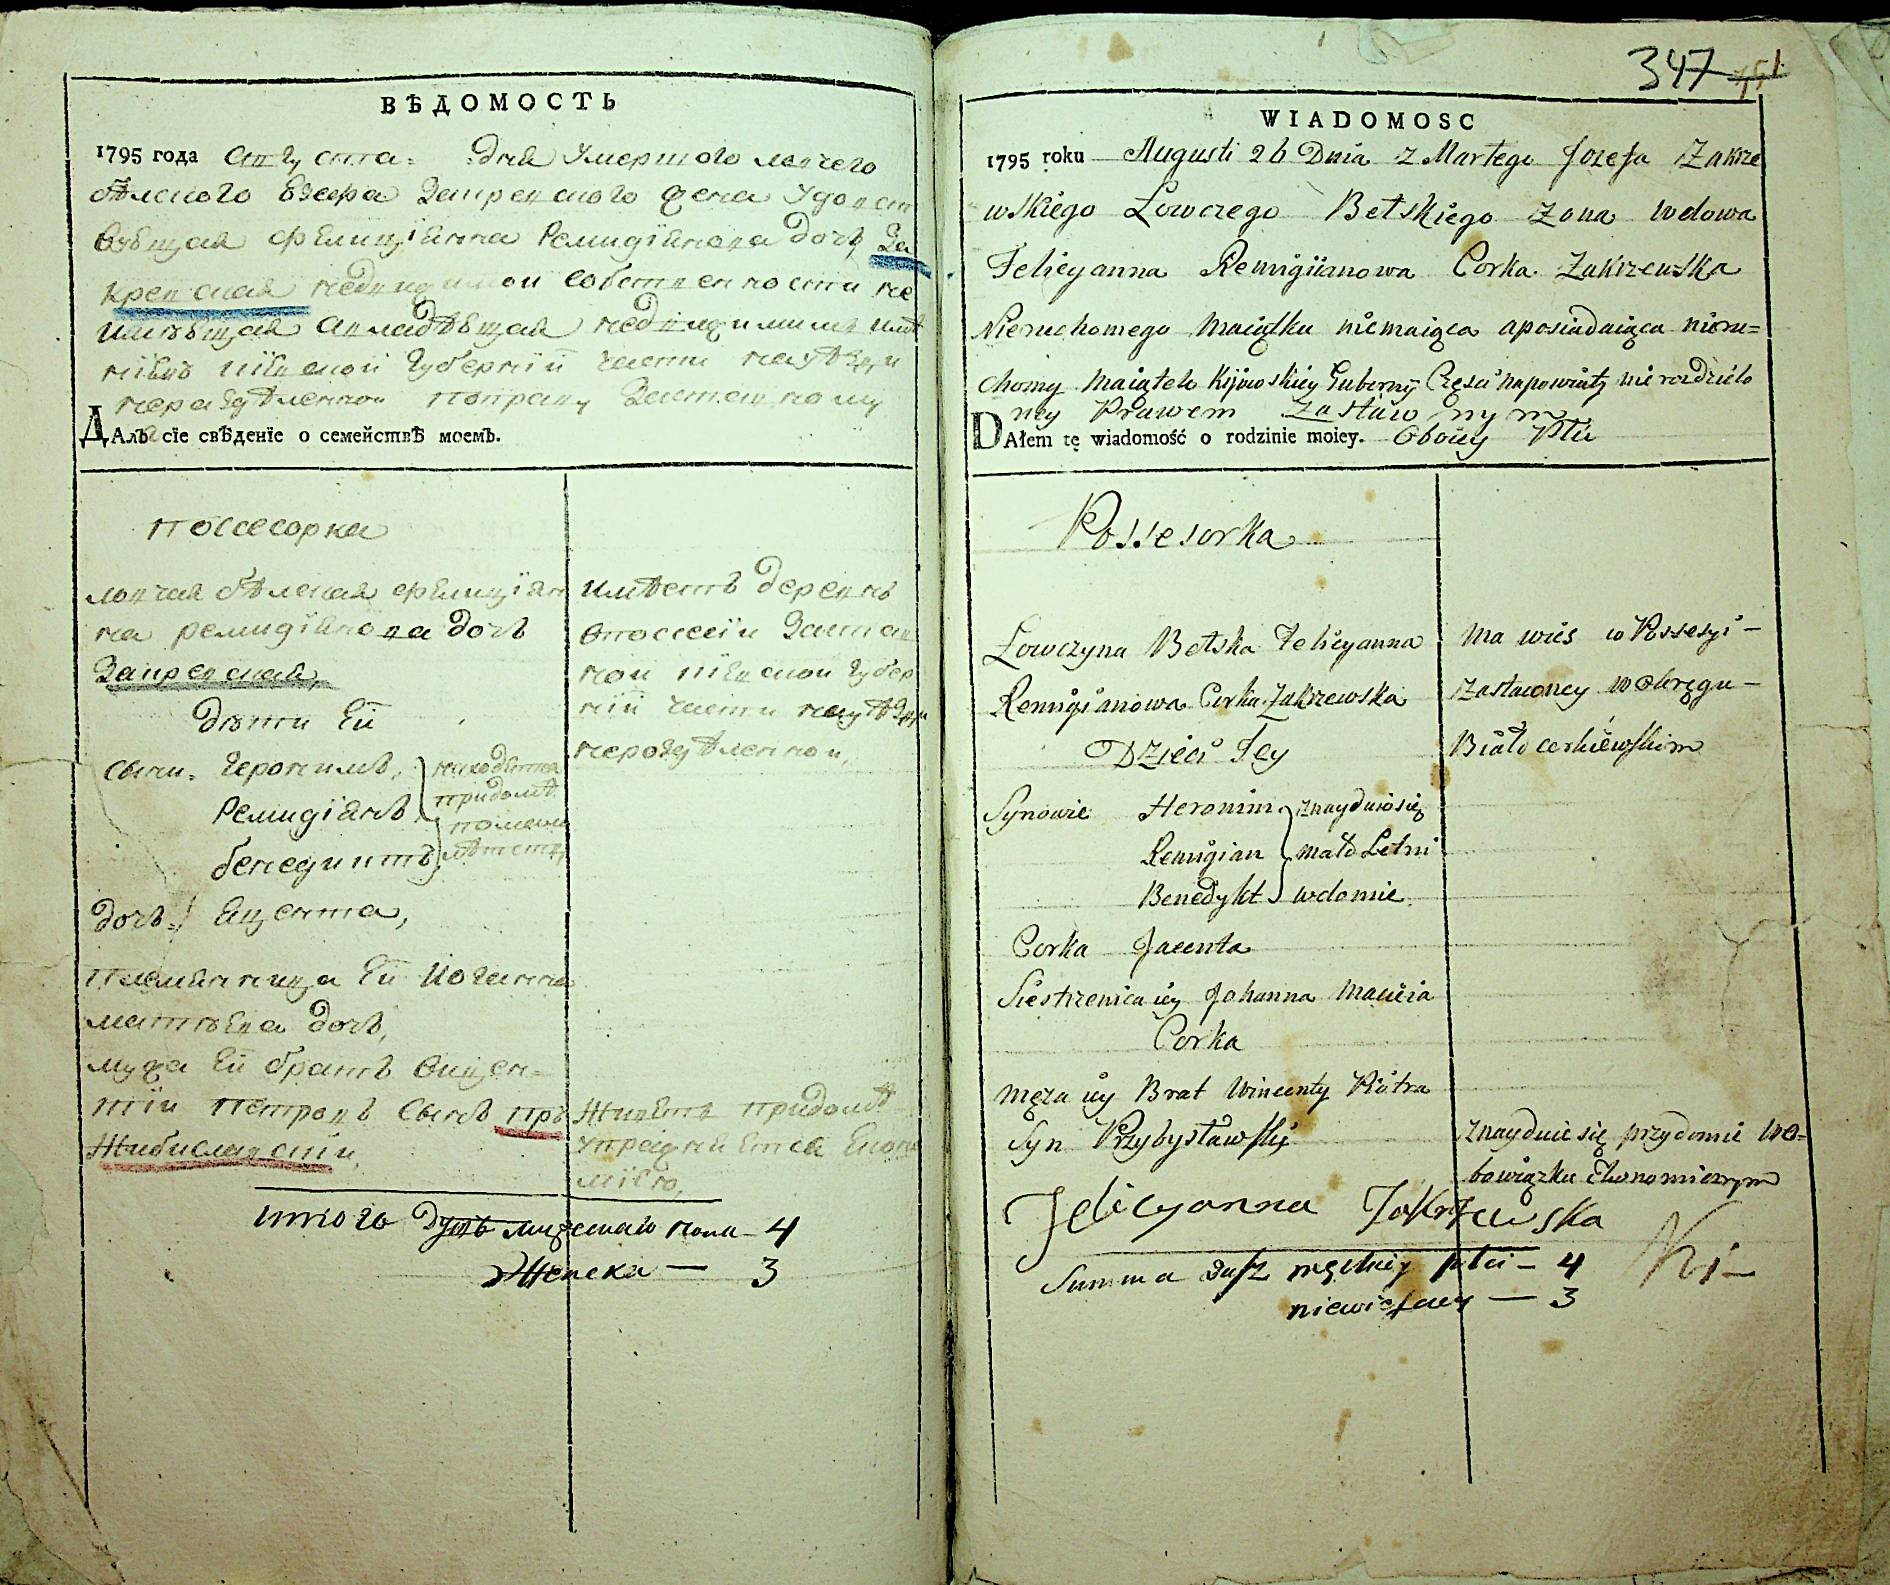 ВѢДОМОСТЬ
1795 года августа дня Умершого ловчего
бѣлского Езефа Закревского жена Удовст
вующая Фелиціянна Ремигіянова дочь За
кревская недвижимой собственности не
имѣющая авладѣющая недвижимымъ имѣ
ніемъ кіевской губерніи части науѣзды
неразделенной поправу заставному
ДАлъ сіе свѣденіе о семействѣ моемъ.
поссесорка
ловчая бѣлская Фелиціян
на ремигіянова дочь
Закревская,
дѣти Ей
сыны. Геронимъ,
Ремигіянъ
бенедиктъ
находятся
придомѣ
дочь. Яцента,
племянница Ей Иоганна
матвѣева дочь,
мужа Ей братъ викен-
тій Петровъ Сынъ прж
жибиславскій,
имѣетъ деревнь
впосесіи Застав
ной кіевской губер
ніи части науѣзды
неразделенной,
Живетъ придомѣ
Итого душъ мужеска пола - 4
Женска — 3
347
WIADOMOSC
1795 roku Augusti 26 Dnia z Martego Jozefa Zakrze
wskiego Łowczego Bełskiego zona wdowa
Felicyanna Remigiianowa Corka Zakrzewska
Nieruchomego maiątku niemaiąca aposiadaiąca nieru=
chomy maiątek Kijowskiey Gubernij Częsci napowiaty nie rozdzielo
ney Prawem zastawnym
DAłem tę wiadomość o rodzinie moiey. Oboiey Płci
Possesorka
Łowczyna Bełska Felicyanna
Remigianowa Corka Zakrzewska
Dzieci Jey
Synowie Heronim znayduiosię
Remigian mało Letni
Benedykt wdomie
Corka Jacenta
Siestrzenica iey Johanna Macieia
Corka
Męza iey Brat Wincenty Piotra
Syn Przybysławski
ma wies w Possesyi -
zastawney w Okręgu -
Biało cerkiewskim
znayduie się przydomie wo=
bowiązku Ekonomicznym
Felicyanna Zakrzewska
Summa dusz męskiey płci - 4
niewiescey — 3